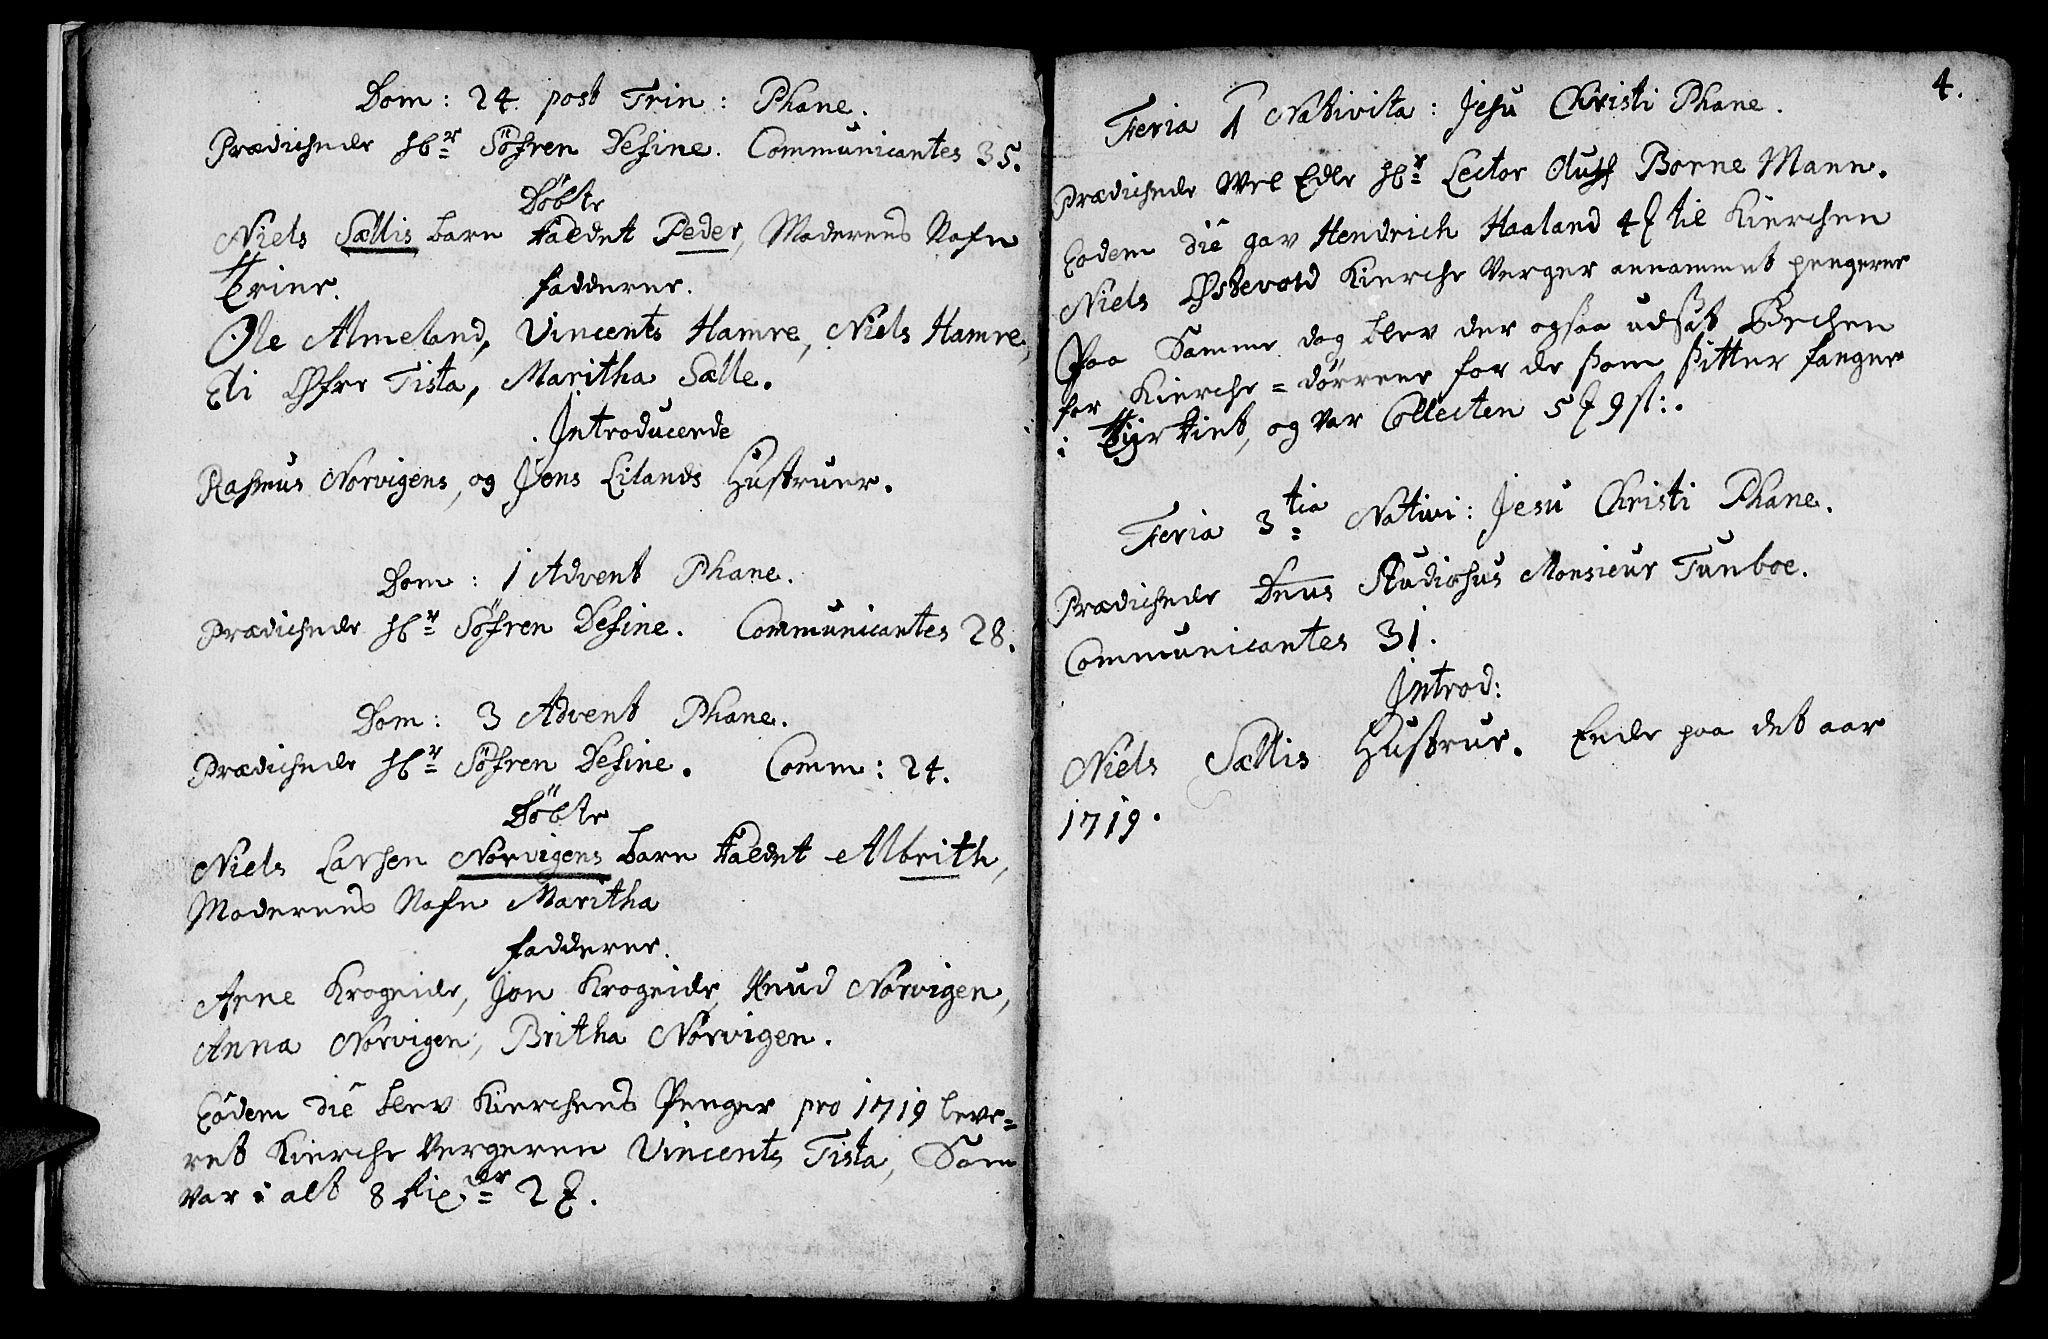 Dom: 24. post Trin: Phane.
Prædichede Hr Söfren Desine. Communicantes 35.
Döbte
Niels Sættis barn kaldet Peder, Moderens Nafn
Trine. fadderne.
Ole Almeland, Vincents Hamre, Niels Hamre,
Eli Øfre Tista, Maritha Sælle.
Introducerde
Rasmus Norvigens, og Jens Lilands Hustruer.
Dom: 1 Advent Phane.
Prædichede Hr Söfren Desine. Communicantes 28.
Dom: 3 Advent Phane.
Prædichede Hr Söfren Desine. Comm: 24.
Döbte
Niels Larsen Norvigens barn kaldet Albrith,
Moderens Nafn Maritha
fadderne.
Arne Krogeide, Jon Krogeide, Knud Norvigen,
Anna Norvigen, Britha Norvigen.
Eodem die blev Kierchens Penger pro 1719 leve=
ret Kierche Vergeren Vincents Tista, Som
var i alt 8 Rixdr 2
4.
Feria 1 Nativita: Jesu Christi Phane.
Prædichede Wel Edle Hr Lector Oluff Borne Mann.
Eodem die gav Hendrich Haaland 4 til Kierchen
Niels Østevold Kierche Verger annammet pengerne
Paa Samme dag blev der ogsaa udsat Bechen
for Kierche=dörrene for de som sitter fanger
i Tyrkiet, og var Collecten 5 9 st:.
Feria 3tia Nativi: Jesu Christi Phane.
Prædichede Dnus Studiosus Monsieur Tunboe.
Communicantes 31.
Introd:
Niels Sættis Hustrue. Ende paa det aar
1719.